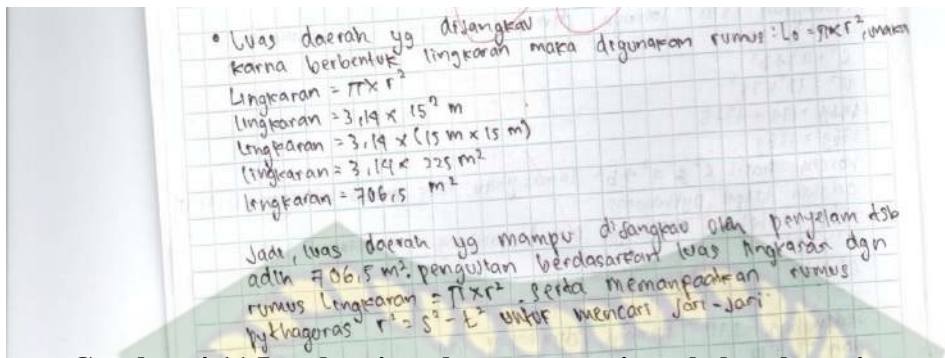 • Luas daerah yg dijangkau
karna berbentuk lingkaran maka digunakan rumus : Lo = π x r², maka
Lingkaran = π x r²
lingkaran = 3,14 x 15² m
lingkaran = 3,14 x (15 m x 15 m)
lingkaran = 3,14 x 225 m²
lingkaran = 706,5 m²
Jadi, luas daerah yg mampu dijangkau oleh penyelam tsb
adlh 706,5 m². pengujian berdasarkan luas lingkaran dgn
rumus Lingkaran = π x r², serta memanpaatkan rumus
pythagoras r² = s² - t² untuk mencari jari-jari